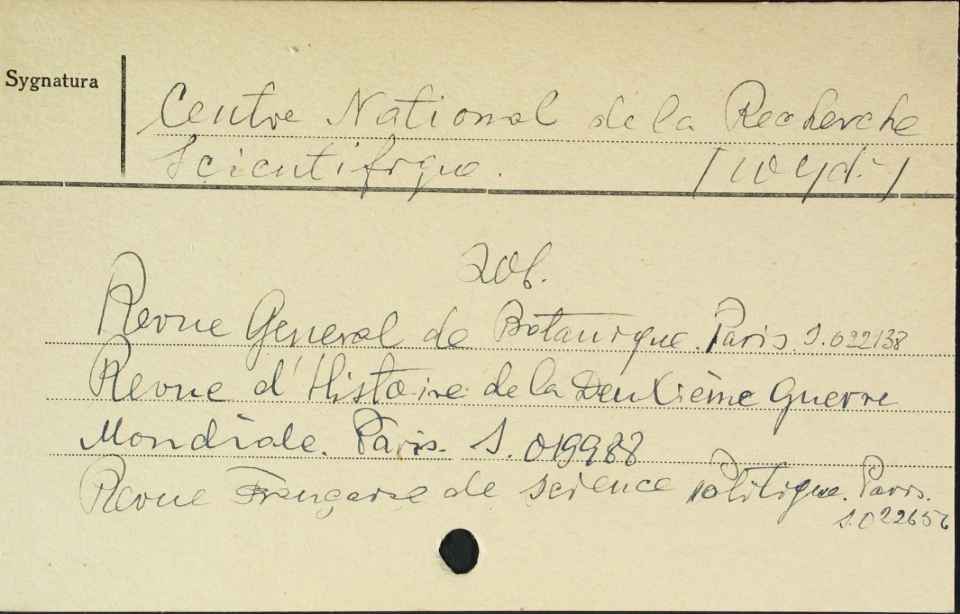 Sygnatura
Centre National de la Recherche
Scientifique. / wyd. /
Zob.
Revue General de Botanique. Paris. S. 022138
Revue d'Histoire de la Deuxième Guerre
Mondiale. Paris. S. 019988
Revue Française de Science Politique. Paris.
S. 022656